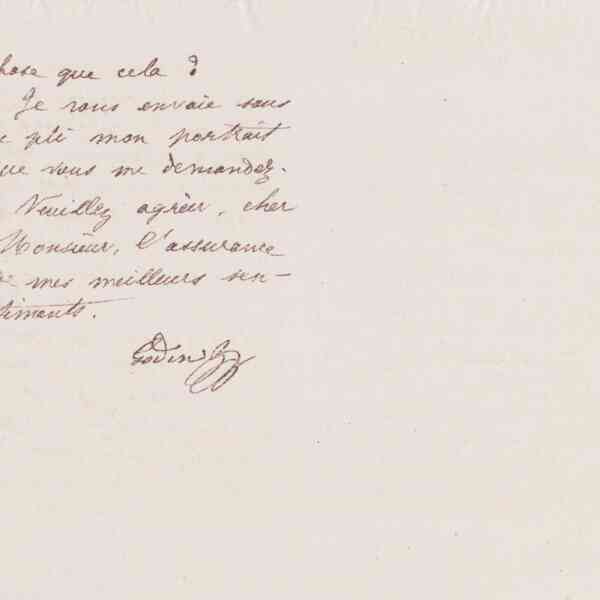 hose que cela ?
Je vous envoie sous
ce pli mon portrait
que vous me demandez.
Veuillez agréer, cher
Monsieur, l'assurance
de mes meilleurs sen-
timents.
Godin